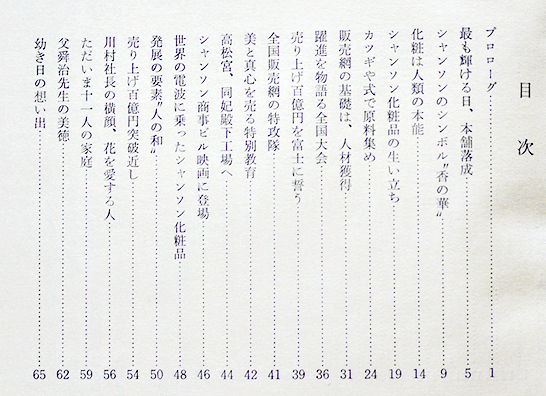 目次
プロローグ……………1
最も輝ける日、本舗落成……………5
シャンソンのシンボル〝香の華〟……………9
化粧は人類の本能……………14
シャンソン化粧品の生い立ち……………19
カツギや式で原料集め……………24
販売網の基礎は、人材獲得……………31
躍進を物語る全国大会……………36
売り上げ百億円を富士に誓う……………39
全国販売網の特攻隊……………41
美と真心を売る特別教育……………42
高松宮、同妃殿下工場へ……………44
シャンソン商事ビル映画に登場……………46
世界の電波に乗ったシャンソン化粧品……………48
発展の要素〝人の和〟……………50
売り上げ百億円突破近し……………54
川村社長の横顔、花を愛する人……………56
ただいま十一人の家庭……………59
父舜治先生の美徳……………62
幼き日の想い出……………65